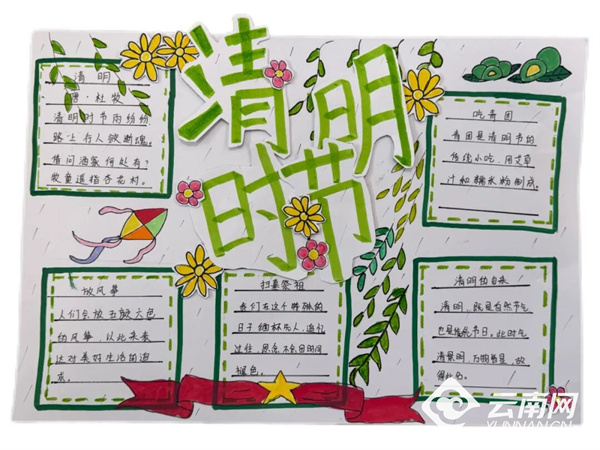 清明时节
清明
唐·杜牧
清明时节雨纷纷
路上行人欲断魂。
借问酒家何处有?
牧童遥指杏花村。
吃青团
青团是清明节的
传统小吃,用艾草
汁和糯米粉制成。
放风筝
人们会放五颜六色
的风筝,以此来表
达对美好生活的追
求。
扫墓祭祖
我们在这个特殊的
日子缅怀先人,追忆
过往,愿
褪色。
清明的由来
清明,既是自然节气
也是传统节日。此时气
清景明,万物皆显,故
得此名。
云南网
YUNNAN.CN